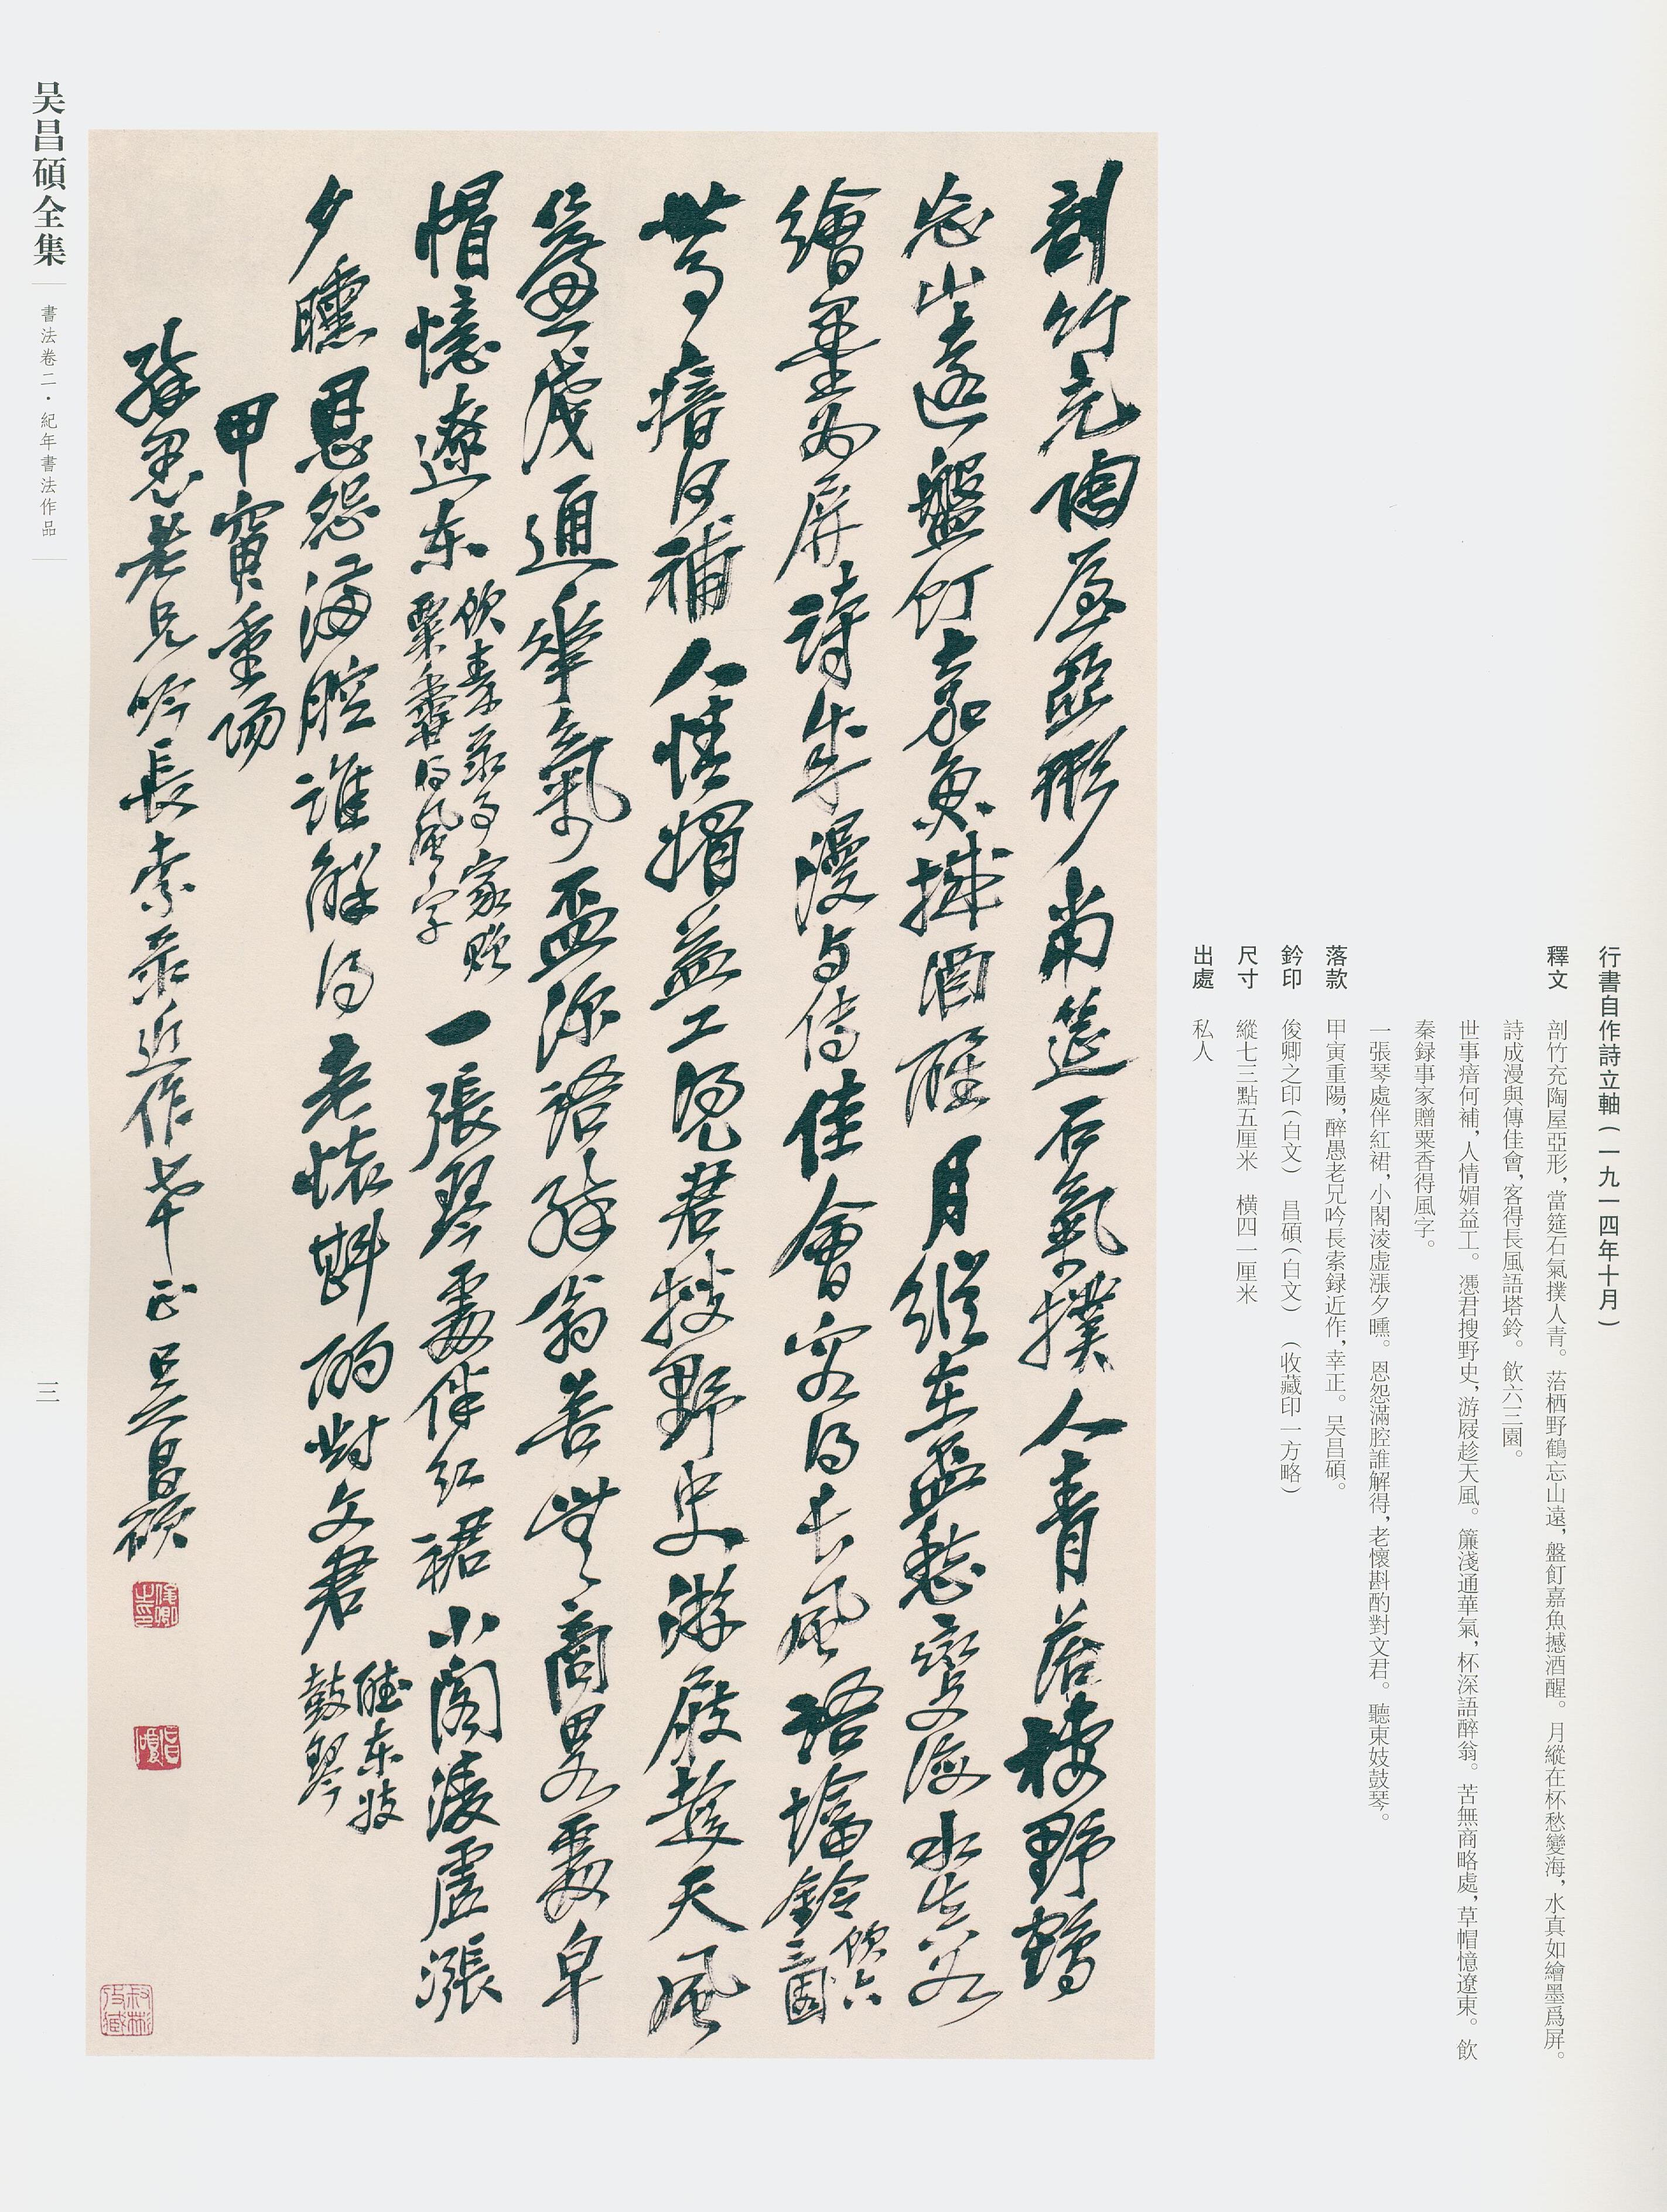 行書自作詩立軸（一九一四年十月）
釋文　剖竹充陶屋亞形，當筵石氣撲人青。萿栖野鶴忘山遠，盤飣嘉魚撼酒醒。月縱在杯愁變海，水真如繪墨爲屏。
詩成漫與傳佳會，客得長風語塔鈴。飲六三園。
世事瘖何補，人情媚益工。憑君搜野史，游屐趁天風。簾淺通華氣，杯深語醉翁。苦無商略處，草帽憶遼東。飲
秦録事家贈粟香得風字。
一張琴處伴紅裙，小閣淩虛漲夕曛。恩怨滿腔誰解得，老懷斟酌對文君。聽東妓鼓琴。
落款　甲寅重陽，醉愚老兄吟長索録近作，幸正。吴昌碩。
鈐印　俊卿之印（白文）　昌碩（白文）　（收藏印一方略）
尺寸　縱七三點五厘米　橫四一厘米
出處　私人
剖竹充陶屋亞形當筵石氣撲人青萿棲野鶴
忘山遠盤飣嘉魚撼酒醒月縱在盃愁變海水真如
繪墨為屏詩成漫与傳佳會客得長風語塔鈴飲六
三園
世事瘖何補人情媚益工憑君搜野史游屐趁天風
簾淺通華氣盃深語醉翁苦無商略處草
帽憶遼東飲秦录事家贈
粟香得風字一張琴處伴紅裙小閣淩虛漲
夕曛恩怨滿腔誰解得老懷斟酌對文君聽東妓
鼓琴
甲寅重陽
醉愚老兄吟長索录近作幸正吳昌碩
俊卿之印
昌碩
吴昌碩全集
書法卷二·紀年書法作品
三